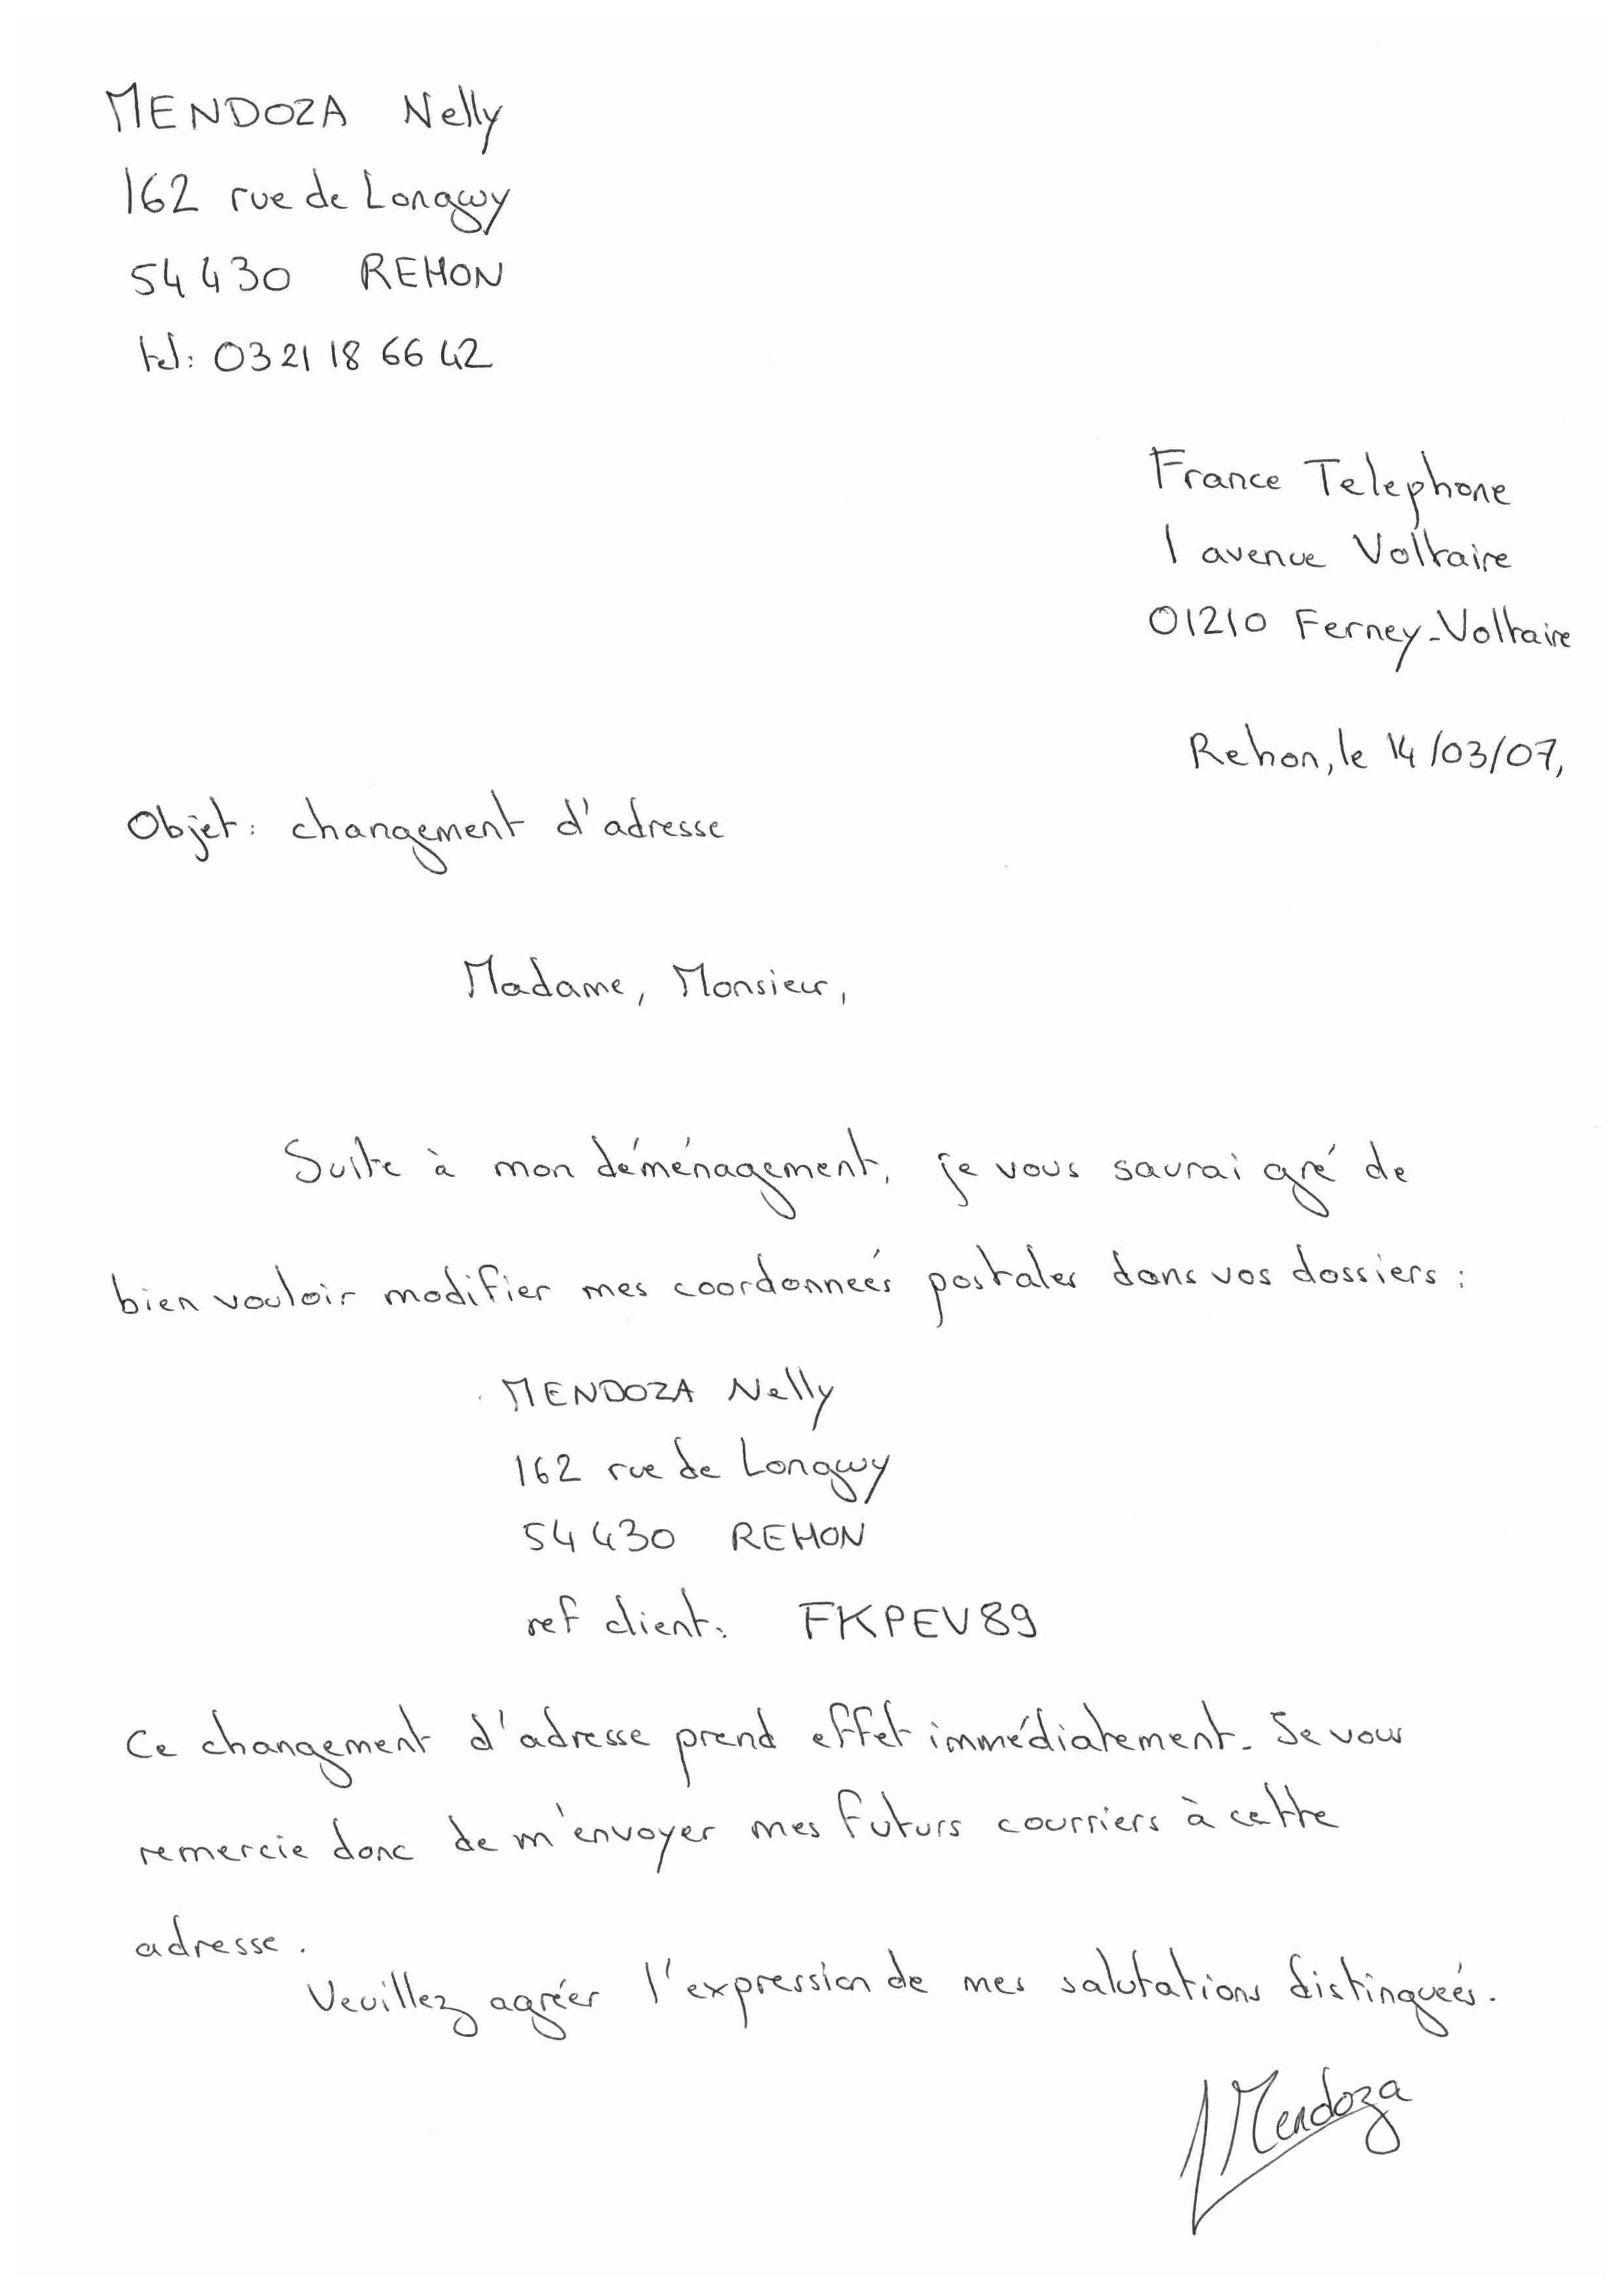 MENDOZA Nelly
162 rue de Longwy
54430 REHON
tel: 03 21 18 66 42
France Telephone
1 avenue Voltaire
01210 Ferney-Voltaire
Rehon, le 14/03/07,
Objet: changement d'adresse
Madame, Monsieur,
Suite à mon déménagement, je vous saurai gré de
bien vouloir modifier mes coordonnées postales dans vos dossiers :
MENDOZA Nelly
162 rue de Longwy
54430 REHON
ref client: FKPEV89
Ce changement d'adresse prend effet immédiatement. Je vous
remercie donc de m'envoyer mes futurs courriers à cette
adresse.
Veuillez agréer l'expression de mes salutations distinguées.
Mendoza